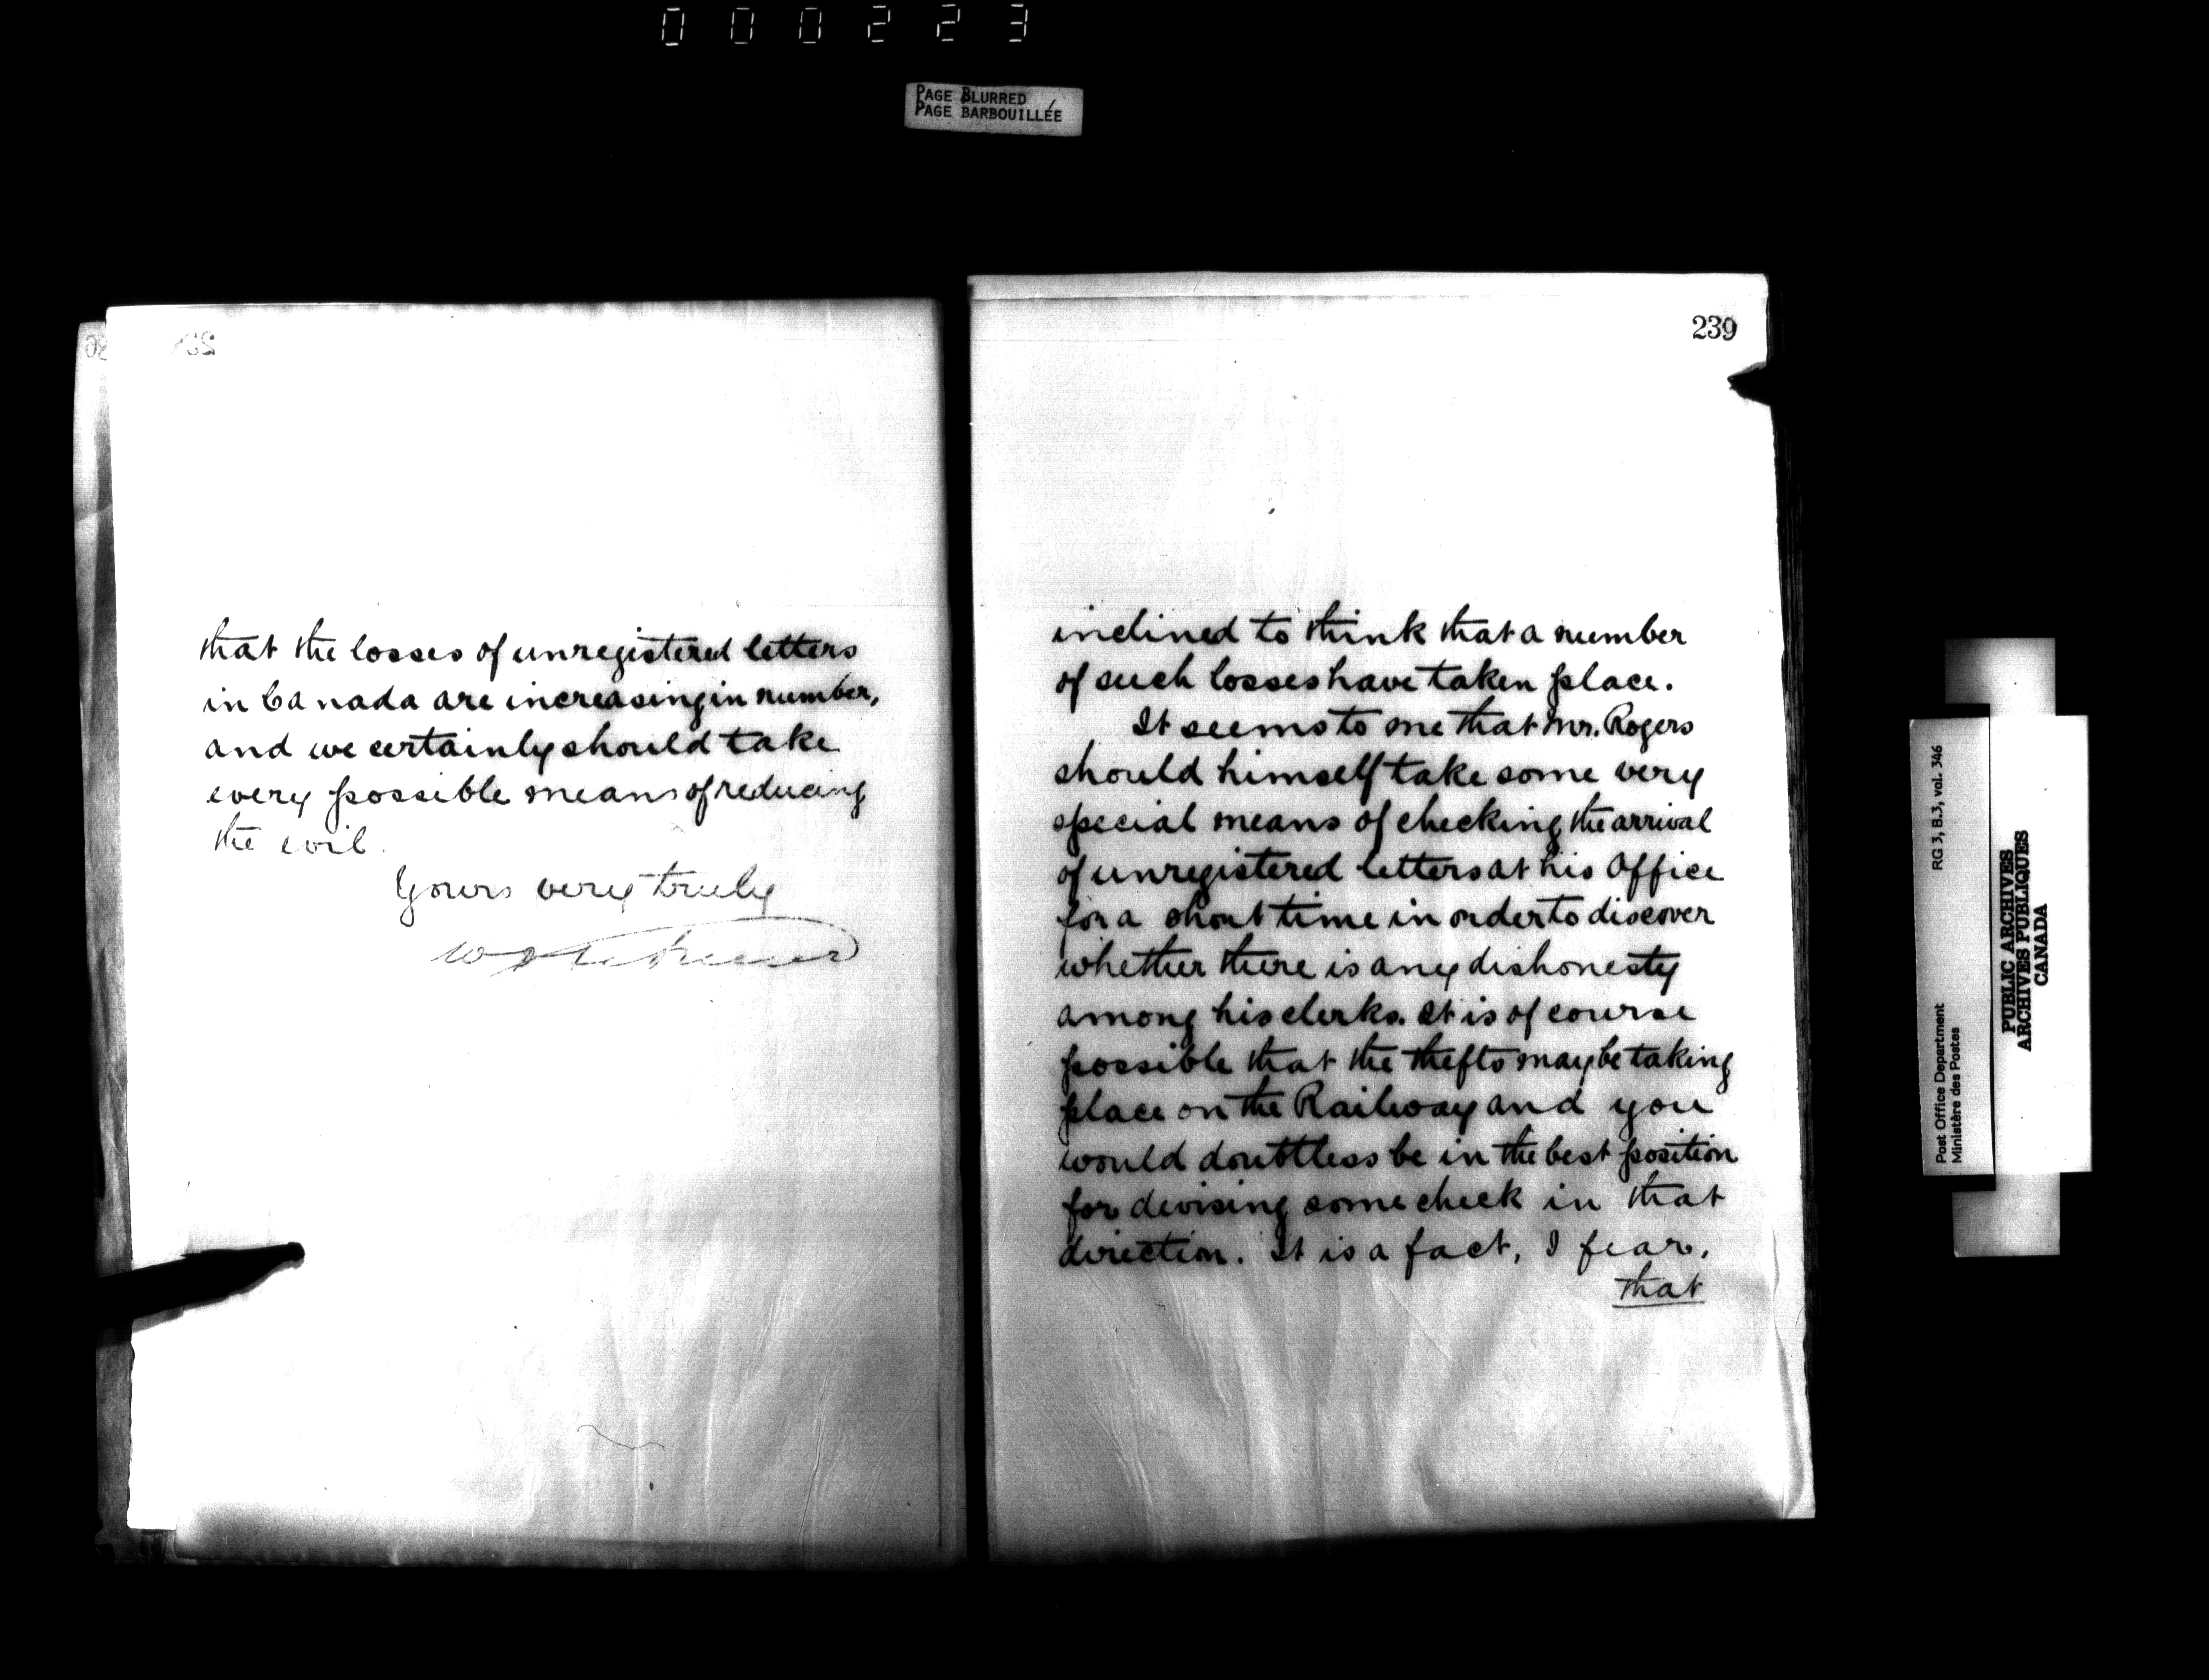 000223
PAGE BLURRED
PAGE BARBOUILLÉE
that the losses of unregistered letters
in Canada are increasing in number,
and we certainly should take
every possible means of reducing
the evil.
Yours very truly
239
inclined to think that a number
of such losses have taken place.
It seems to me that Mr. Rogers
should himself take some very
special means of checking the arrival
of unregistered letters at his Office
for a short time in order to discover
whether there is any dishonesty
among his clerks. It is of course
possible that the thefts may be taking
place on the Railway and you
would doubtless be in the best position
for devising some check in that
direction. It is a fact, I fear,
that
Post Office Department
Ministère des Postes
RG 3, B.3, vol. 346
PUBLIC ARCHIVES
ARCHIVES PUBLIQUES
CANADA